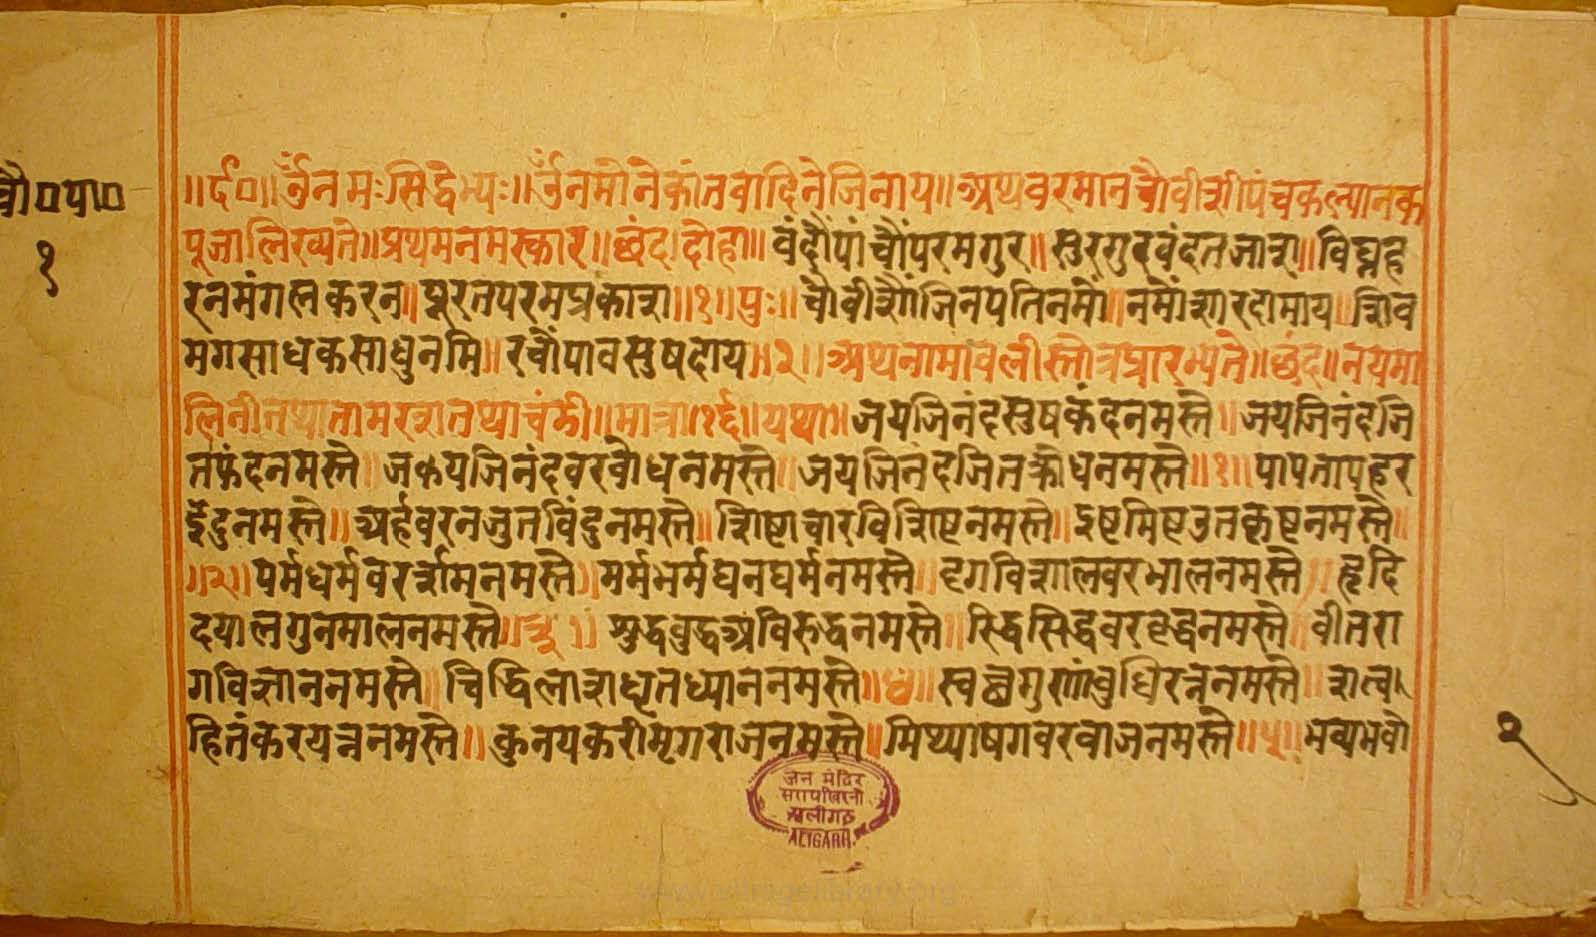 चौ०पा०
१
॥र्द०॥ ॐनमःसिद्धेभ्यः॥ॐनमोनेकांतवादिनेजिनाय॥अथवरमानचौवीशीपंचकल्यानक
पूजालिख्यते॥प्रथमनमस्कार॥छंद।दोहा॥वंदौंपांचौंपरमगुर॥सुरगुरवंदतजाश॥विघ्नह
रनमंगलकरन॥पूरतपरमप्रकाश॥१॥पुः॥चौवीशौंजिनपतिनमौं॥नमौंशारदामाय॥शिव
मगसाधकसाधुनमि॥रचौंपावसुषदाय॥२॥अथनामावलीस्तोत्रप्रारभ्यते॥छंद॥नयमा
लिनीतथातामरशतथाचंडी॥मात्रा॥१६॥यथा॥जयजिनंदसुषकंदनमस्ते॥जयजिनंदजि
तफंदनमस्ते॥जकयजिनंदवरवोधनमस्ते॥जयजिनंदजितक्रोधनमस्ते॥१॥पापतापहर
इंदुनमस्ते॥अर्हवरनजुतविंदुनमस्ते॥शिष्टाचारविशिष्टनमस्ते॥इष्टमिष्टउतकृष्टनमस्ते॥
॥२॥पर्मधर्मवरशर्मनमस्ते॥मर्मभर्मघनघर्मनमस्ते॥दृगविशालवरभालनमस्ते॥हृदि
दयालगुनमालनमस्ते॥३॥शुद्धवुद्धअविरुद्धनमस्ते॥रिद्धिसिद्धिवरवृद्धनमस्ते॥वीतरा
गविज्ञाननमस्ते॥चिद्विलाशधृतध्याननमस्ते॥४॥स्वछगुणांवुधिरत्ननमस्ते॥शत्व
हितंकरयत्ननमस्ते॥कुनयकरीमृगराजनमस्ते॥मिथ्याषगवरवाजनमस्ते॥५॥भव्यभवो
२
जैन मंदिर
अलीगढ़
ALIGARH.